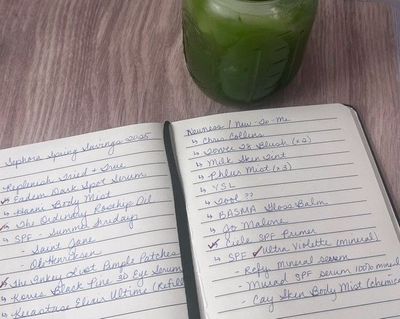 Sephora Spring Savings 2025
Replenish Tried + True
Faden Dark Spot Serum
Body Mist
The Ordinary Rosehip Oil
SPF - Summer Fridays
- Saint Jane
- Ole Henriksen
The Inkey List Pimple Patches
Korres Black Pine 3D Eye Serum
Kerastase Elixir Ultime (Refill
Newness / New-To-Me
Chris Collins
Tower 28 Blush (x2)
Milk Skin Tint
Phlur Mist (x3)
YSL
Tool ??
BASMA Gloss Balm
Jo Malone
SPF Primer
SPF Ultra Violette (mineral)
- Refy Mineral screen
- Murad SPF serum 100% mineral
- Cay Skin Body Mist (chemica